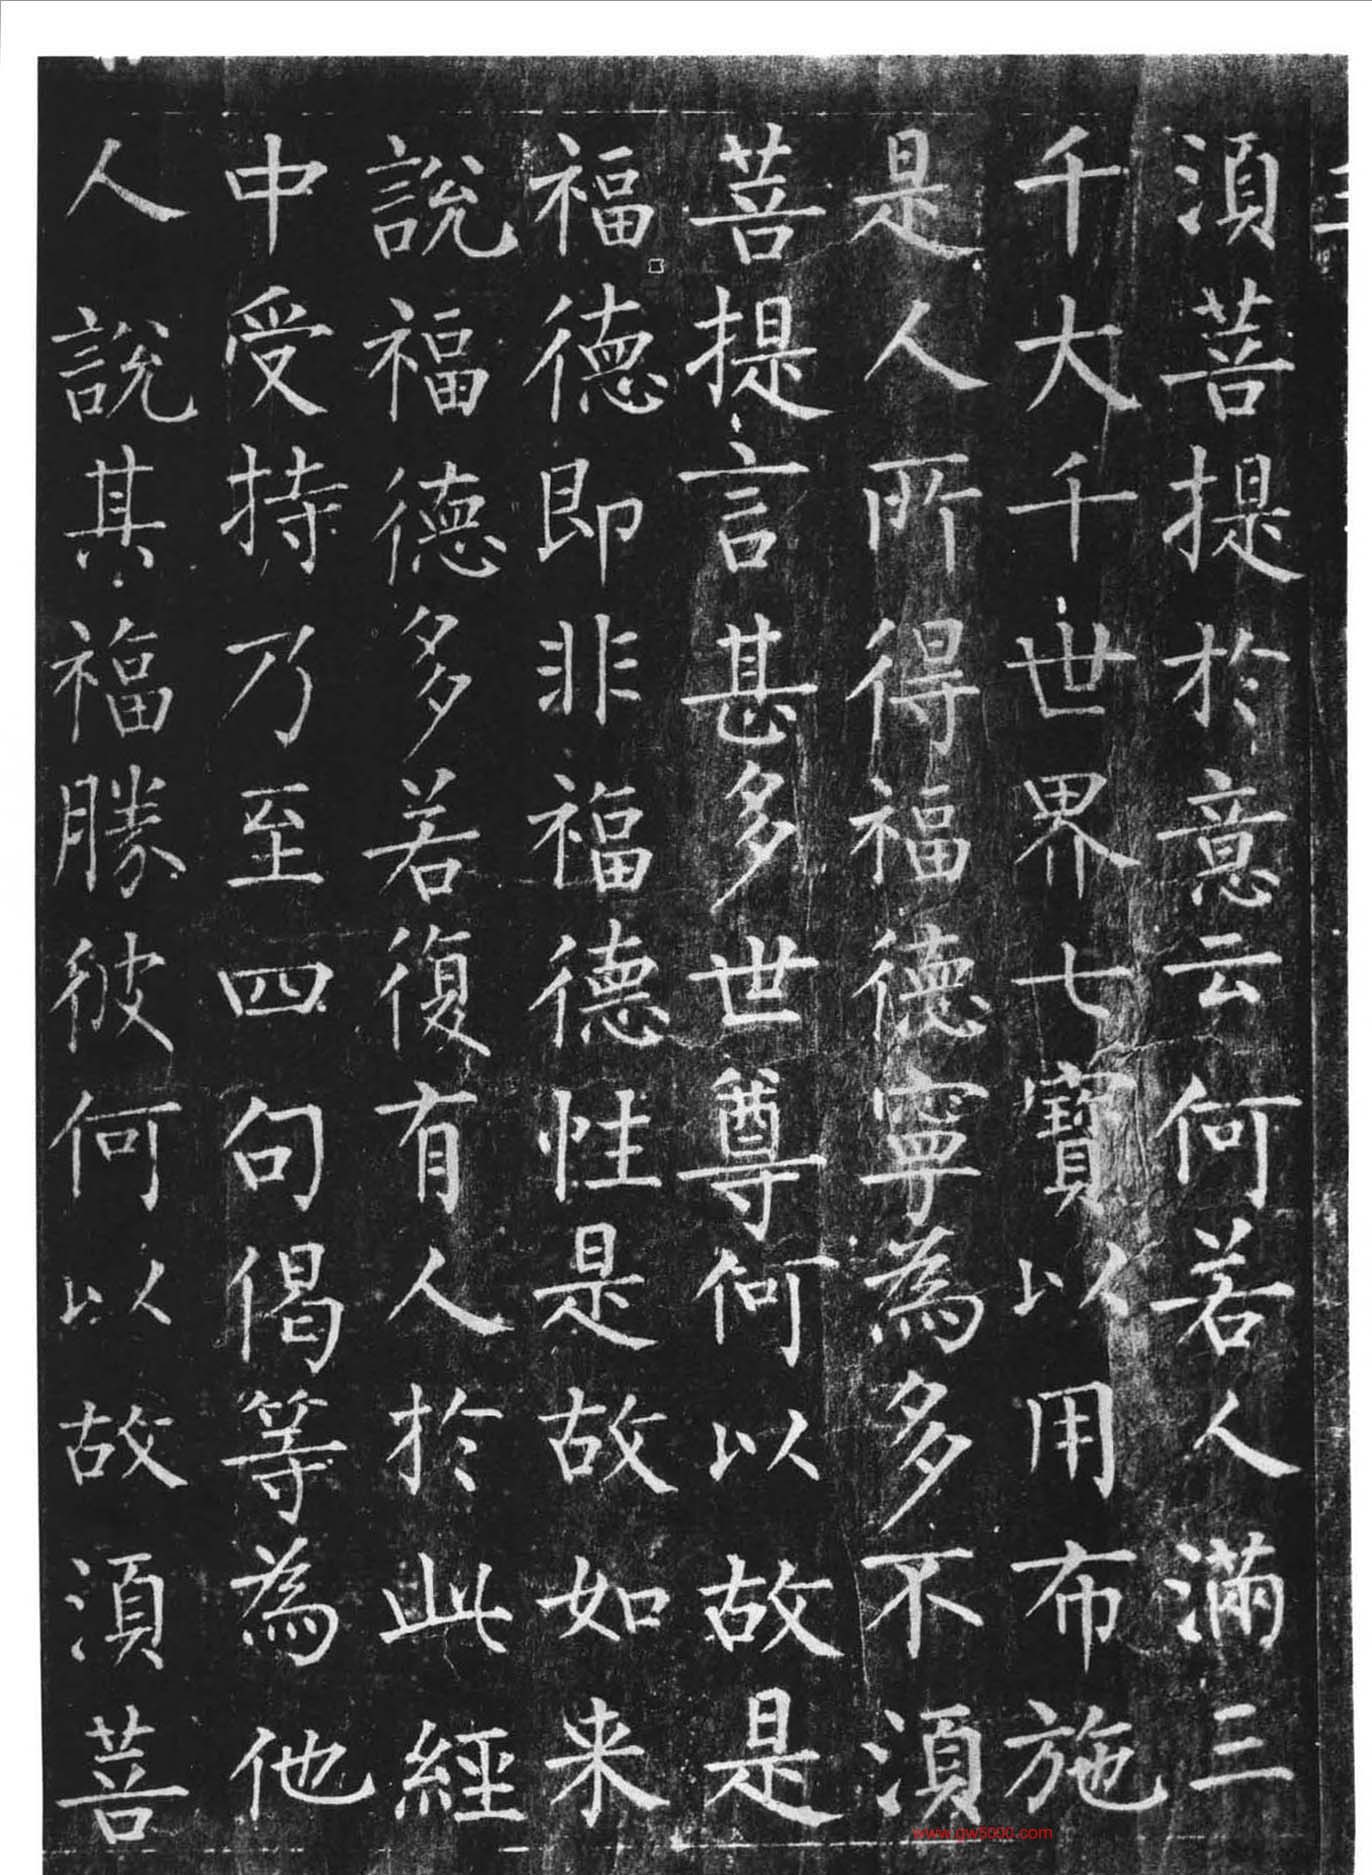 湏菩提於意云何若人滿三
千大千世界七寶以用布施
是人所得福徳寧為多不湏
菩提言甚多世尊何以故是
福徳即非福徳性是故如来
說福徳多若復有人於此經
中受持乃至四句偈等為他
人說其福勝彼何以故湏菩
www.gw5000.com